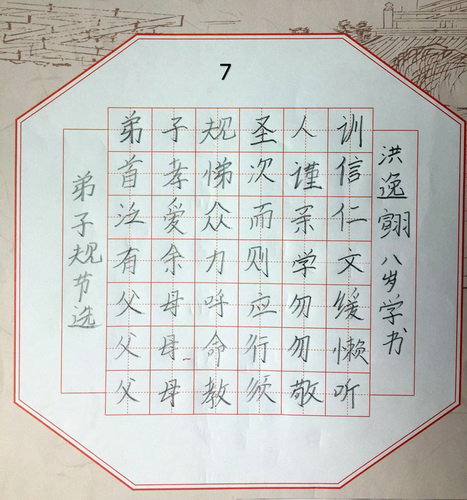 7
弟子规圣人训
首孝悌次谨信
泛爱众而亲仁
有余力则学文
父母呼应勿缓
父母命行勿懒
父母教须敬听
弟子规节选
洪逸 八岁学书